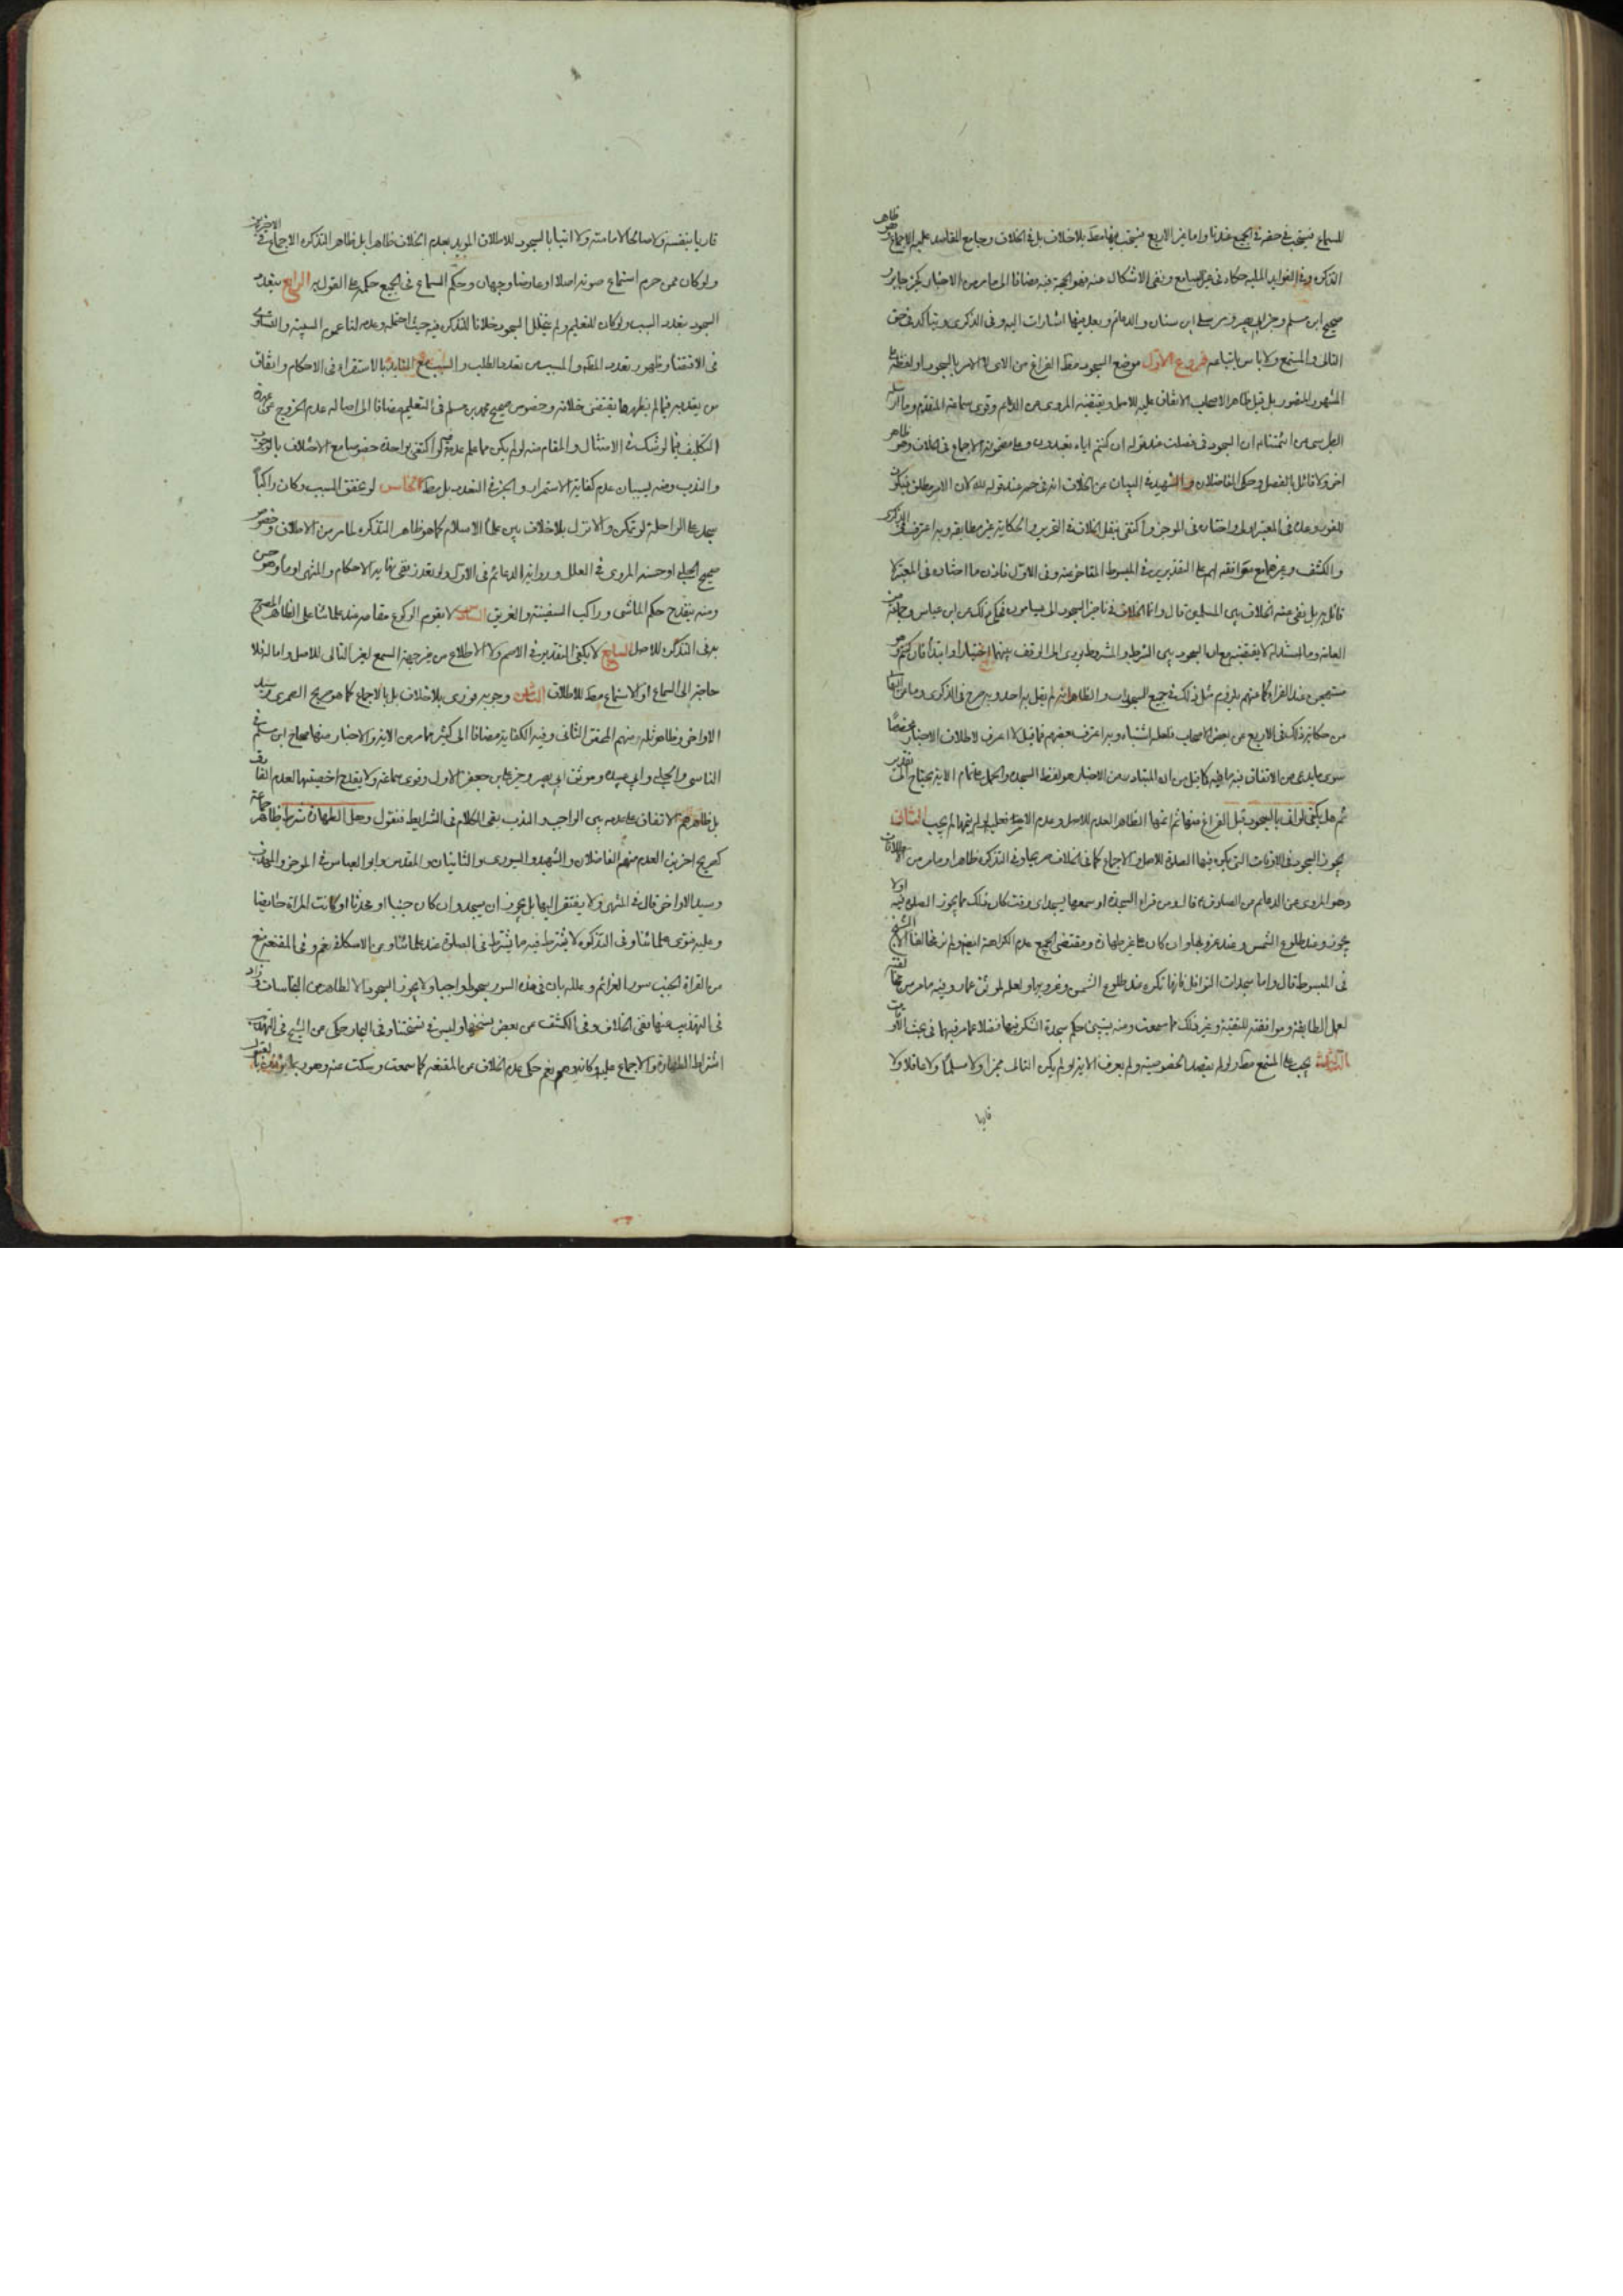 للسماع فيستحب في حقه في الجميع عندنا واما غير الاربع فيستحب فيها مطلقا بلا خلاف بل في الخلاف وجامع المقاصد عليه الاجماع وهو ظاهر
التذكرة وفي الفوايد الملية حكاه في غير السامع ونفى الاشكال عنه فهو الحجة فيه مضافا الى ما مر من الاخبار كخبر جابر و
صحيح ابن مسلم وخبر ابي بصير ومرسل ابن سنان والدعائم وبعد منها اشارات اليه وفي الذكرى ويتاكد في حق
التالى والمستمع ولا باس باتباعه فروع الاول موضع السجود مطلقا الفراغ من الاى لا الامر بالسجود او لفظه على
المشهور المنصور بل قيل ظاهر الاصحاب الاتفاق عليه للاصل ويقتضيه المروى عن الدعائم وقوى سماعة المتقدم وما ارسله
الطبرسى عن ائمتنا ان السجود في فصلت عند قوله ان كنتم اياه تعبدون وعلى مضمونه الاجماع في الخلاف وهو ظاهر
اخر ولا قائل بالفصل وحكى الفاضلان والشهيد في البيان عن الخلاف انه في حم عند قوله لله لان الامر مطلق فيكون
للفور وعليه في المعتبر اولا واختاره في الموجز واكتفى بنقل الخلاف في التحرير والحكاية غير مطابقة وبه اعترف في الذكرى
والكشف وغيرهما مع موافقته لهم على التقديرين في المبسوط المتاخر عنه وفي الاول فاذن ما اختاره في المعتبر لا
قائل به بل نفى عنه الخلاف بين المسلمين قال وانما الخلاف في تاخير السجود الى يسامون فحكى ذلك عن ابن عباس وجماعة من
العامة وما استدل له لا يقتضيه مع ان السجود بين الشرط والمشروط يودى الى الوقف بينهما اختيارا وابتداء فان كنتم وهو
مستهجن عند القراء كما عنهم يلزمه مثل ذلك في جميع السجدات والظاهر انه لم يقل به احد وبه صرح في الذكرى وما عن
من حكاية ذلك في الاربع عن بعض الاصحاب فلعله اشتباه وبه اعترف بعضهم فما قيل لا اعرف لاطلاق الاخبار مخصصا
سوى ما يدعى من الاتفاق فيه ما فيه كما قيل من ان المتبادر من الاخبار هو لفظ السجدة والحمل على تمام الاية يحتاج الى تقدير
ثم هل يكفى لو اتى بالسجود قبل الفراغ منها ثم اتمها الظاهر العدم للاصل وعدم الاجتزاء فعليه لو لم يتمها لم يجب الثانى
يجوز السجود في الاوقات التى يكره فيها الصلوة للاصل والاجماع كما في الخلاف صريحا وفي التذكرة ظاهرا وما مر من الاطلاقات
وهو المروى عن الدعائم من الصادق ع قال ومن قراء السجدة او سمعها يسجد اى وقت كان ذلك مما يجوز الصلوة فيه او لا
يجوز وعند طلوع الشمس وعند غروبها وان كان على غير طهارة ومقتضى الجميع عدم الكراهة ايضا ولم نر مخالفا الا الشيخ
في المبسوط قال واما سجدات النوافل فانها تكره عند طلوع الشمس وغروبها ولعله لموثق عمار وفيه ما مر من مخالفته
لعمل الطايفة وموافقته للتقية وغير ذلك مما سمعت ومنه يتبين حكم سجدة الشكر فيها فضلا عما مر فيها في بحث المواقيت
الثالث يجب على المستمع مطلقا ولو لم يقصد الخصوصية ولم يعرف الاية او لم يكن التالى مميزا ولا مسلما ولا عاقلا ولا
قاريا
قاريا بنفسه ولا صالحا للامامة ولا اتيا بالسجود للاطلاق المويد بعدم الخلاف ظاهرا بل ظاهر التذكرة الاجماع في الاخيرين
ولو كان ممن حرم استماع صوته اصلا او عارضا وجهان وحكم السماع في الجميع حكمه على القول به الرابع يتعدد
السجود بتعدد السبب ولو كان للتعليم ولم يتخلل السجود خلافا للتذكرة فيه حيث احتمله وعدمه لنا عموم السببية والتساوى
في الاقتضاء وظهور تعدد الطلب والمسبب من تعدد الطلب والسبب مع التايد بالاستقراء في الاحكام واتفاق
من يعتد به فيما لم يظهر ما يقتضى خلافه وخصوص صحيح محمد بن مسلم في التعليم مضافا الى اصالة عدم الخروج عن عهدة
التكليف فيما لو شك في الامتثال والمقام منه لو لم يكن مما علم عدمه لو اكتفى بواحدة خصوصا مع الاختلاف بالوجوب
والندب ومنه يستبان عدم كفاية الاستمرار والجر في التعدد بل مطلقا الخامس لو تحقق السبب وكان راكبا
سجد على الراحلة لو تمكن والا نزل بلا خلاف بين علماء الاسلام كما هو ظاهر التذكرة لما مر من الاطلاق وخصوص
صحيح الحلبى او حسنه المروى في العلل ورواية الدعائم في الاول ولو تعذر ففى نهاية الاحكام والمنتهى اوما وهو حسن
ومنه ينقدح حكم الماشى وراكب السفينة والغريق السادس لا يقوم الركوع مقامه عند علمائنا على الظاهر المصرح
به في التذكرة للاصل السابع لا يكفى التقدير في الاصم ولا الاطلاع من غير جهة السمع لغير التالى للاصل واما له فلا
حاجة الى السماع او الاستماع مطلقا للاطلاق الثامن وجوبه فورى بلا خلاف بل بالاجماع كما هو صريح الصيمرى وسيد
الاواخر وظاهر ثلة منهم المحقق الثانى وفيه الكفاية مضافا الى كثير مما مر من الاية والاخبار منها صحاح ابن مسلم في
الناسى والحلبى وابى عبيدة وموثق ابى بصير وخبر على بن جعفر الاول وقوى سماعة ولا يقدح اخصيتها لعدم القائل بالفرق
بل ظاهرهم الاتفاق على عدمه بين الواجب والندب بقى الكلام في الشرايط فنقول وهل الطهارة شرط ظاهر جماعة
كصريح اخرين العدم منهم الفاضلان والشهيد والسيورى والثانيان والمقدس وابو العباس في الموجز والمهذب
وسيد الاواخر قال في المنتهى ولا يفتقر اليها بل يجوز ان يسجد وان كان جنبا او محدثا او كانت المراة حائضا
وعليه فتوى علمائنا وفي التذكرة لا يشترط فيه ما يشترط في الصلوة عند علمائنا وعن الاسكافى نعم وفي المقنعة منع
من القراة للجنب سور العزائم وعلله بان في هذه السور سجودا واجبا ولا يجوز السجود الا لطاهر من النجاسات وزاد
في التهذيب عنها نفى الخلاف وفي الكشف عن بعض نسخها وليس في نسختنا وفي البحار حكى عن الشيخ في التهذيب
اشتراط الطهارة والاجماع عليه وكانه وهم نعم حكى عدم الخلاف عن المقنعة كما سمعت وسكت عنه وهو ربما